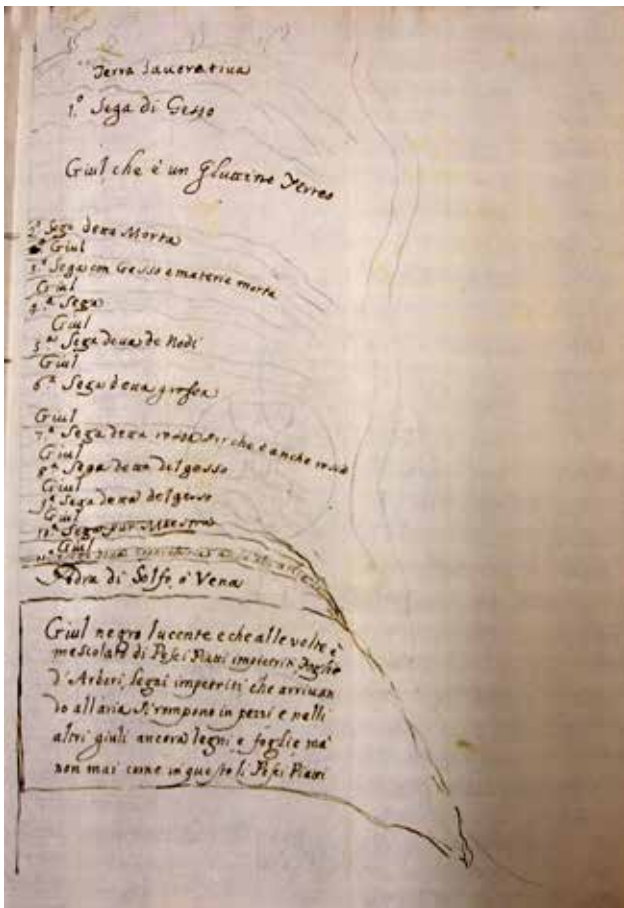 Terra Lavorativa
1.º Sega di Gesso
Giul che è un Gluttine Terreo
2.ª Sega detta Morta
Giul
3.ª Sega con Gesso e materia morta
Giul
4.ª Sega
Giul
5.ª Sega detta de Nodi
Giul
6.ª Sega detta grossa
Giul
7.ª Sega detta rossa che è anche
Giul
8.ª Sega detta del gosso
Giul
9.ª Sega detta del gesso
Giul
10.ª Sega pur Maestra
Giul
Pedra di Solfo, ò Vena
Giul negro lucente e che alle volte è
mescolato di Pesci Piatti impietriti, Foglie
d'Arberi, Legni impetriti che arrivan
do all aria si rompono in pezzi e nelli
altri giuli ancora legni e foglie ma
non mai come in questo li Pesci Piatti